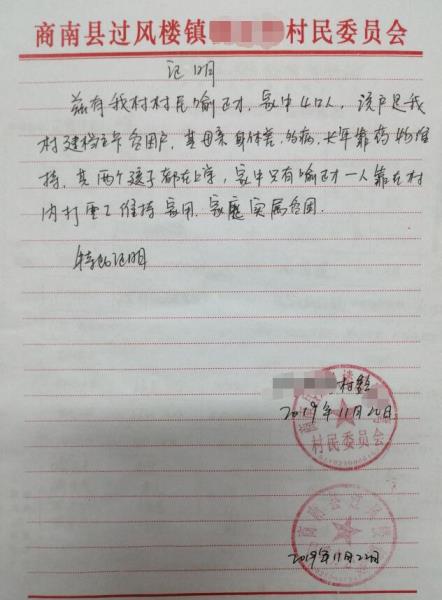 商南县过风楼镇 村民委员会
证明
兹有我村村民喻正才,家中4口人,该户是我
村建档立卡贫困户,其母亲身体差,多病,长年靠药物维
持,其两个孩子都在上学,家中只有喻正才一人靠在村
内打零工维持家用,家庭实属贫困.
特此证明
村委
2019年11月20日
村民委员会
商南县过风楼
2019年11月22日